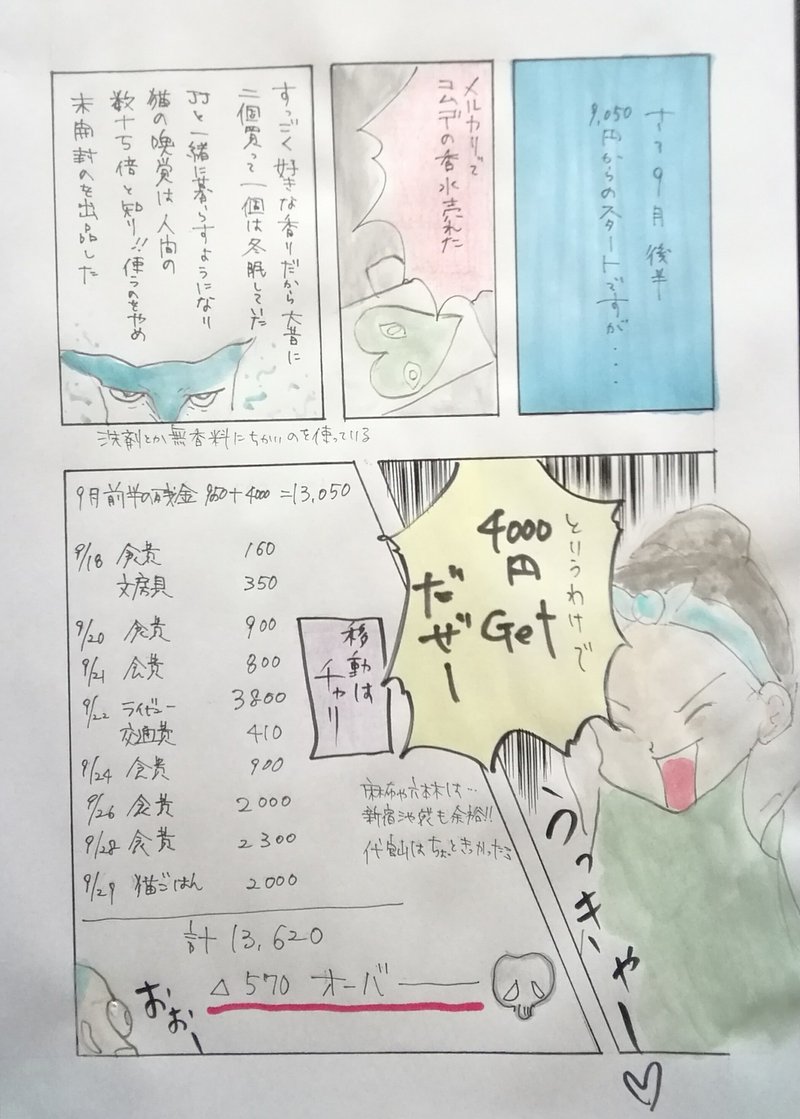 さて9月後半
9,050円からのスタートですが....
メルカリで
コムデの香水売れた
すっごく好きな香りだから大昔に
二個買って一個は冬眠してた
JJと一緒に暮らすようになり
猫の嗅覚は人間の
数十万倍と知り!!使うのをやめ
未開封のを出品した
洗剤とか無香料にちかいのを使っている
というわけで
4000
円
Get
だぜー
うっきゃー♡
9月前半の残金 9050+4000=13,050
9/18 食費 160
文房具 350
9/20 食費 900
9/21 食費 800
9/22 ライビュー 3800
交通費 410
9/24 食費 900
9/26 食費 2000
9/28 食費 2300
9/29 猫ごはん 2000
計 13,620
△ 570 オーバー
移動は
チャリ
麻布や六本木は…
新宿池袋も余裕!!
代官山はちょっときつかった
おおー